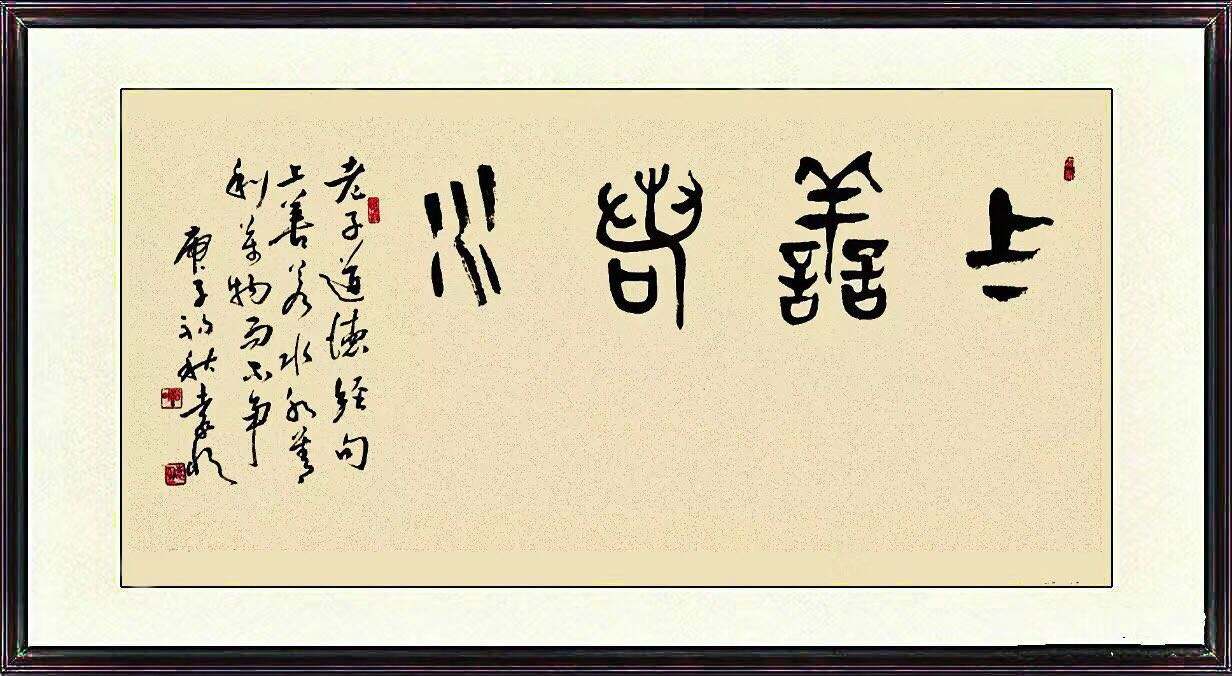 上善若水
老子道德经句
上善若水水善
利万物而不争
庚子初秋